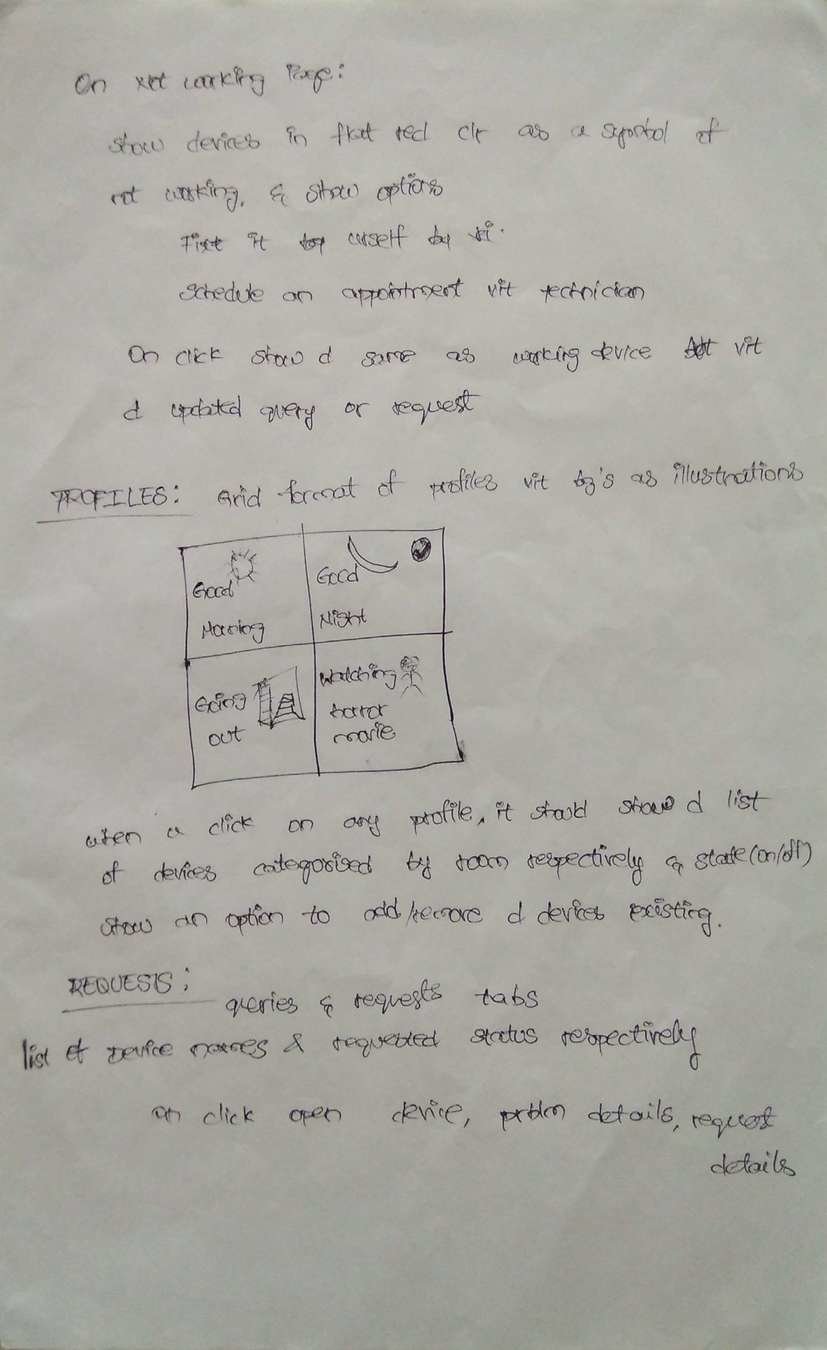 On not working Page:
show devices in flat red clr as a symbol of
not working, & show options
Fix it by urself by
schedule an appointment vit technician
On click show d same as working device vit
d updated query or request
PROFILES: Grid format of profiles vit bg's as illustrations
Good
Morning
Good
Night
Going
out
Watching
horror
movie
when a click on any profile, it should show d list
of devices categorised by room respectively & state (on/off)
show an option to add/remove d devices existing.
REQUESTS:
queries & requests tabs
list of Device names & requested status respectively
on click open device, prblm details, request
details